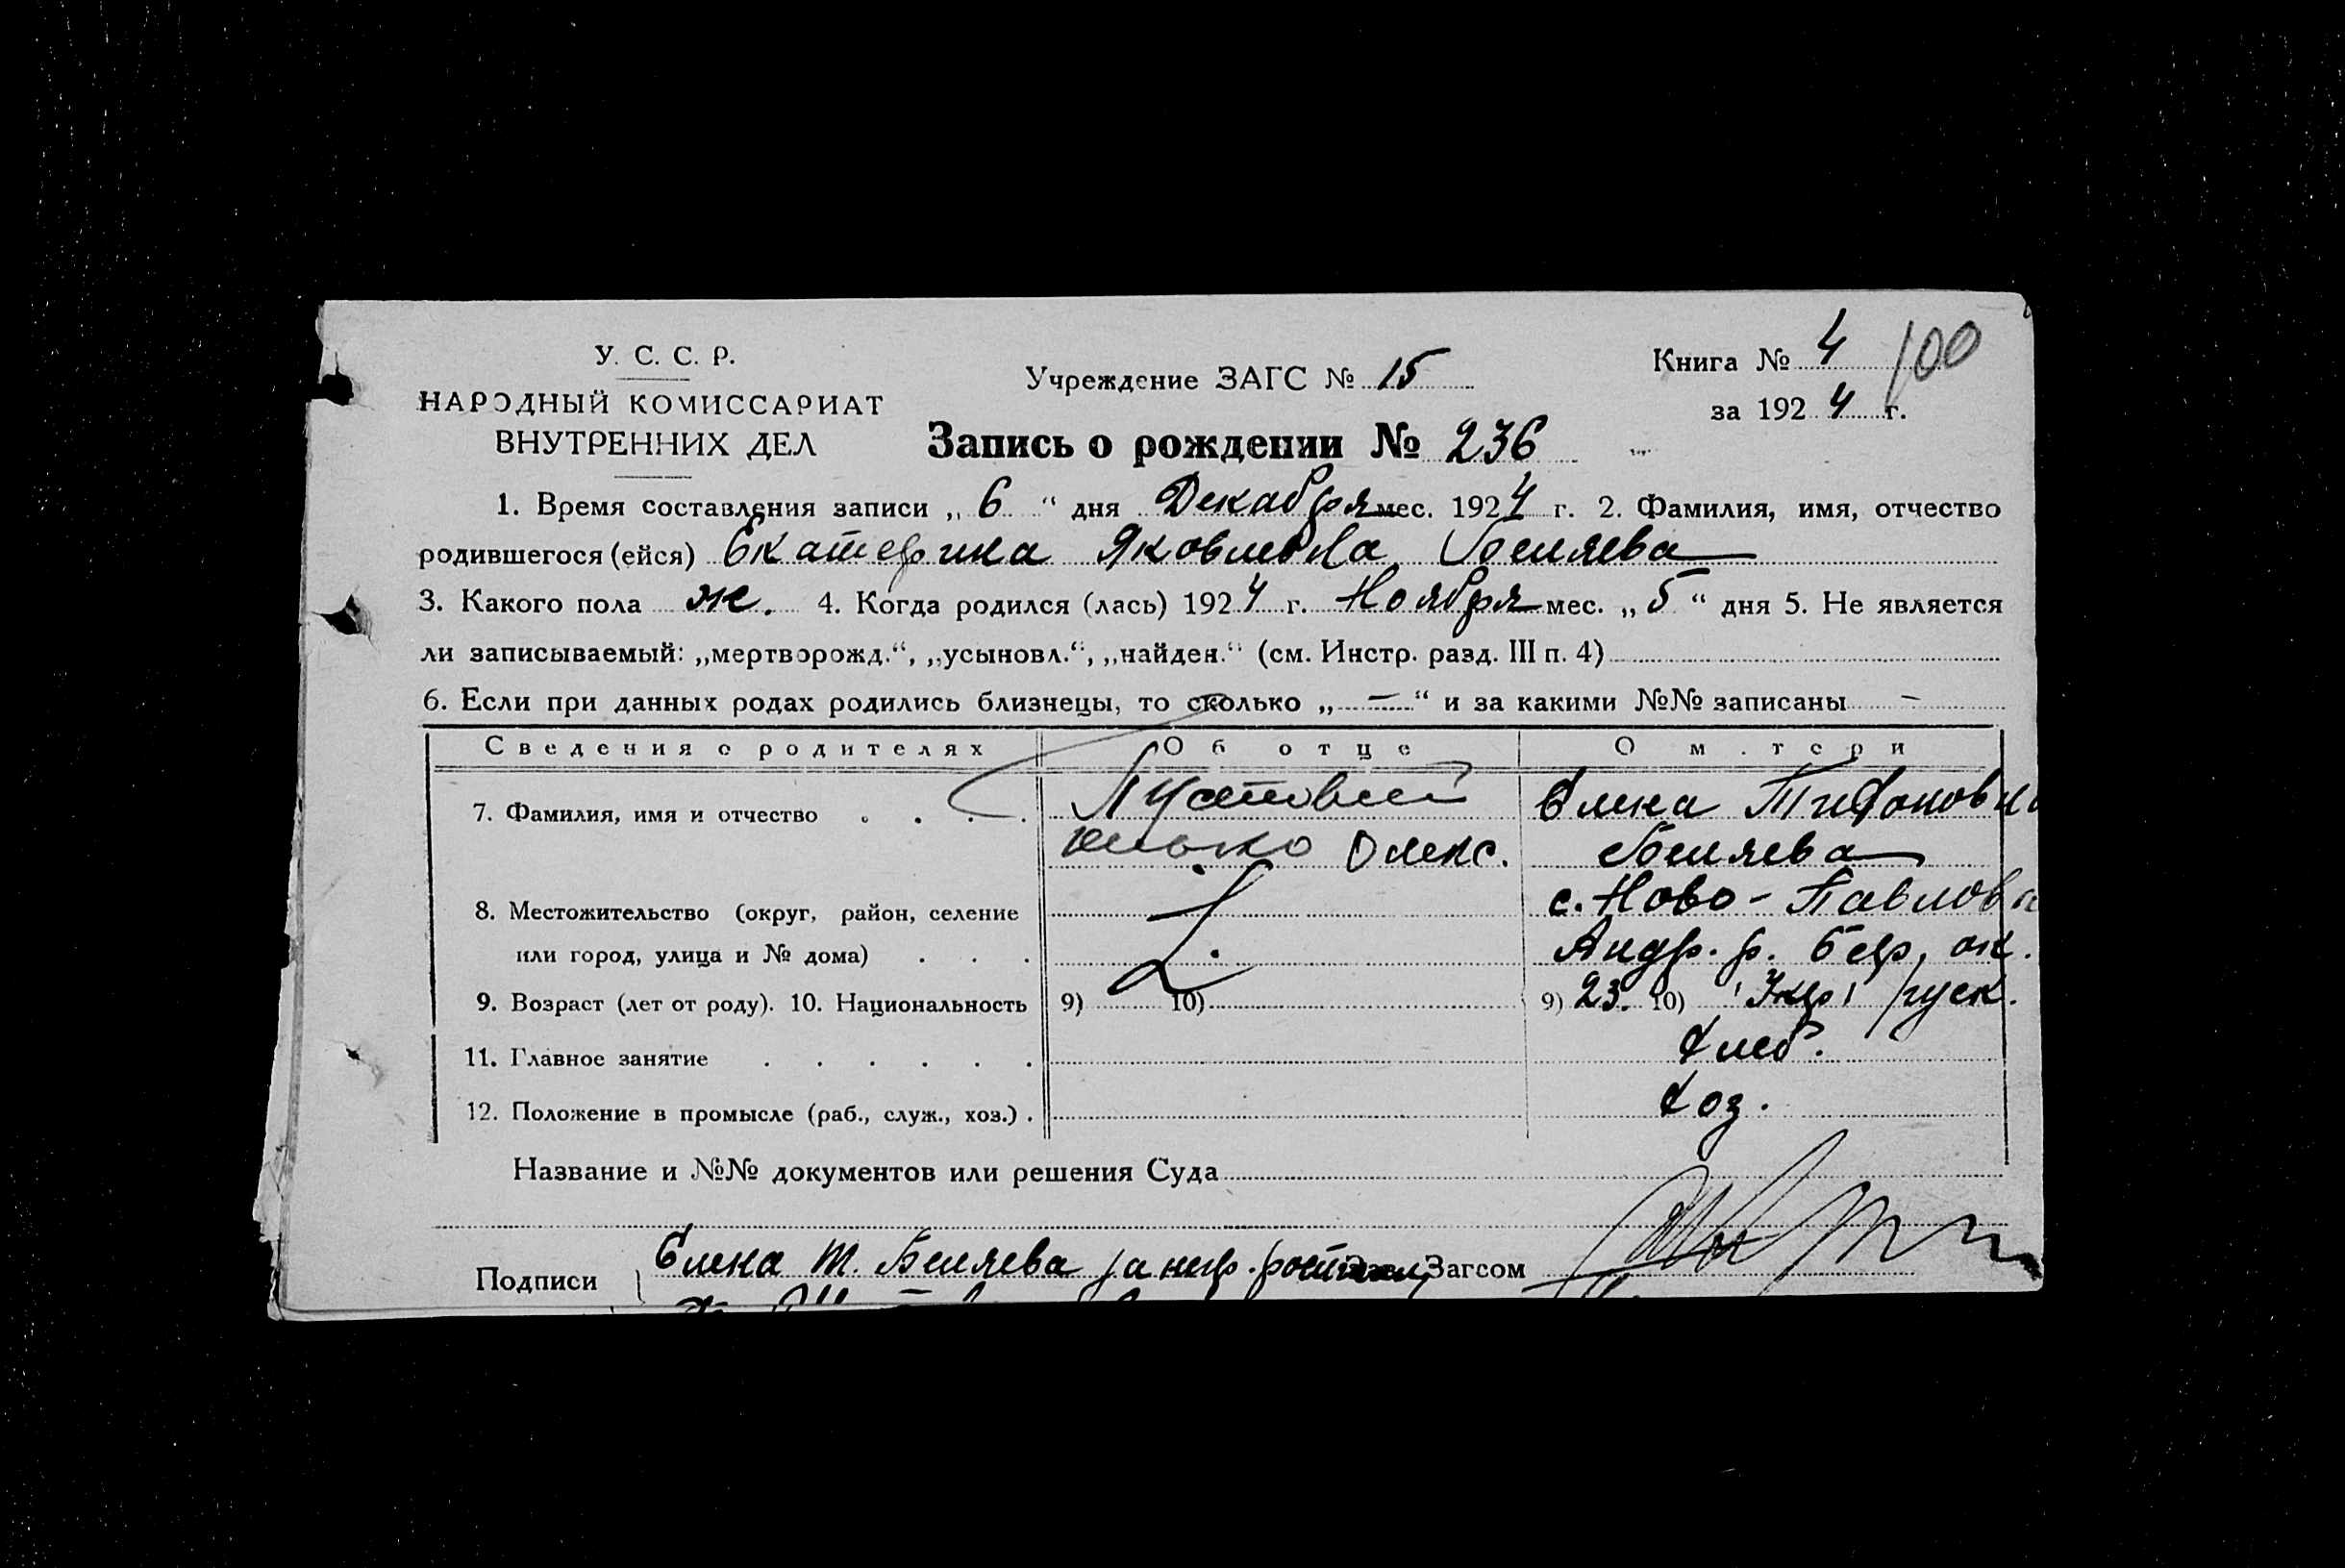 У. С. С. Р.
НАРОДНЫЙ КОМИССАРИАТ
ВНУТРЕННИХ ДЕЛ
Учреждение ЗАГС № 15
Книга № 4 100
за 1924 г.
Запись о рождении № 236
1. Время составления записи „6“ дня Декабря мес. 1924 г. 2. Фамилия, имя, отчество
родившегося (ейся) Екатерина Яковлевна Беляева
3. Какого пола ж. 4. Когда родился (лась) 1924 г. Ноября мес. „5“ дня 5. Не является
ли записываемый: „мертворожд.“, „усыновл.“, „найден.“ (см. Инстр. разд. III п. 4)
6. Если при данных родах родились близнецы, то сколько „—“ и за какими №№ записаны —
Сведения о родителях Об отце О матери
7. Фамилия, имя и отчество Пустовий Елена Тихоновна
Олекс. Беляева
8. Местожительство (округ, район, селение с. Ново-Павловка
или город, улица и № дома) Андр. р. Бер. ок.
9. Возраст (лет от роду). 10. Национальность 9) 10) 9) 23. 10) Укр руск.
11. Главное занятие Хлеб.
12. Положение в промысле (раб., служ., хоз.) Хоз.
Название и №№ документов или решения Суда
Подписи Елена Т. Беляева за негр. Загсом